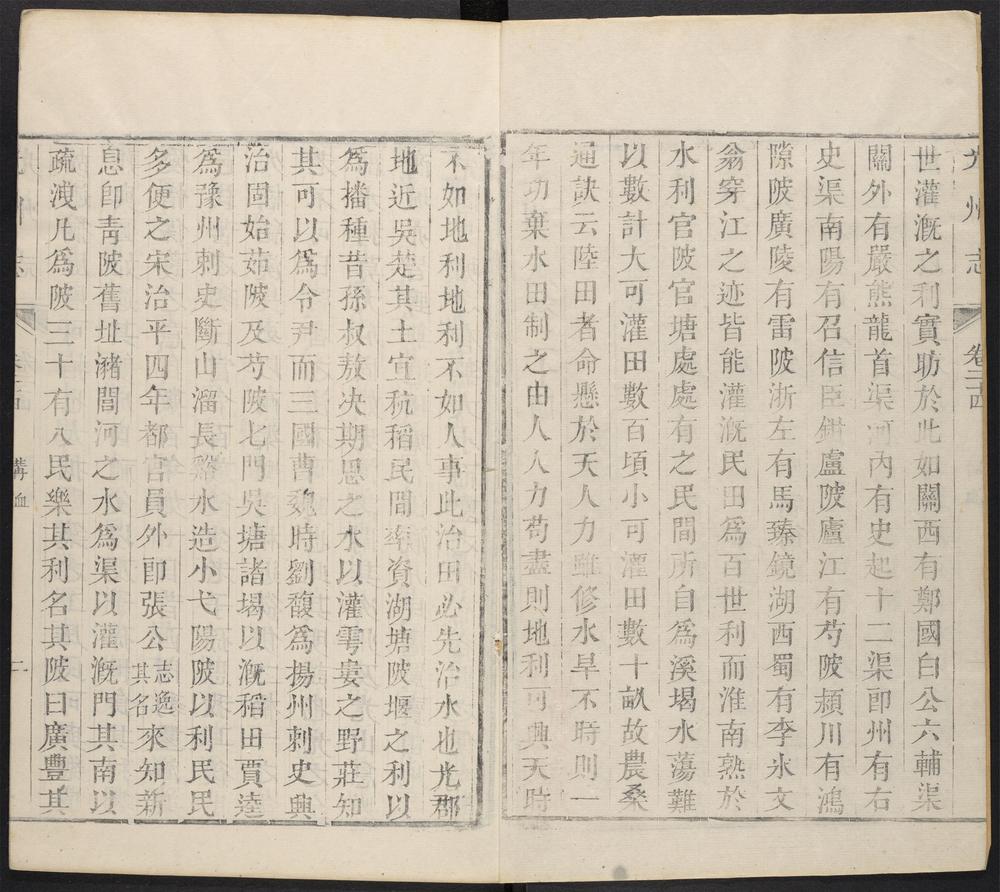 光州志 卷二十四
世灌溉之利實助於此如關西有鄭國白公六輔渠
關外有嚴熊龍首渠河內有史起十二渠即州有右
史渠南陽有召信臣鉗盧陂廬江有芍陂潁川有鴻
隙陂廣陵有雷陂浙左有馬臻鏡湖西蜀有李氷文
翁穿江之迹皆能灌溉民田爲百世利而淮南熟於
水利官陂官塘處處有之民間所自爲溪堨水蕩難
以數計大可灌田數百頃小可灌田數十畝故農桑
通訣云陸田者命懸於天人力雖修水旱不時則一
年功棄水田制之由人人力苟盡則地利可興天時
不如地利地利不如人事此治田必先治水也光郡
地近吳楚其土宜秔稻民間率資湖塘陂堰之利以
爲播種昔孫叔敖決期思之水以灌雩婁之野莊知
其可以爲令尹而三國曹魏時劉馥爲揚州刺史興
治固始茹陂及芍陂七門吳塘諸堨以溉稻田賈逵
爲豫州刺史斷山溜長谿水造小弋陽陂以利民民
多便之宋治平四年都官員外卽張公志逸其名來知新
息卽靑陂舊址瀦閭河之水爲渠以灌溉門其南以
疏洩凡爲陂三十有八民樂其利名其陂曰廣豐其
溝洫 二